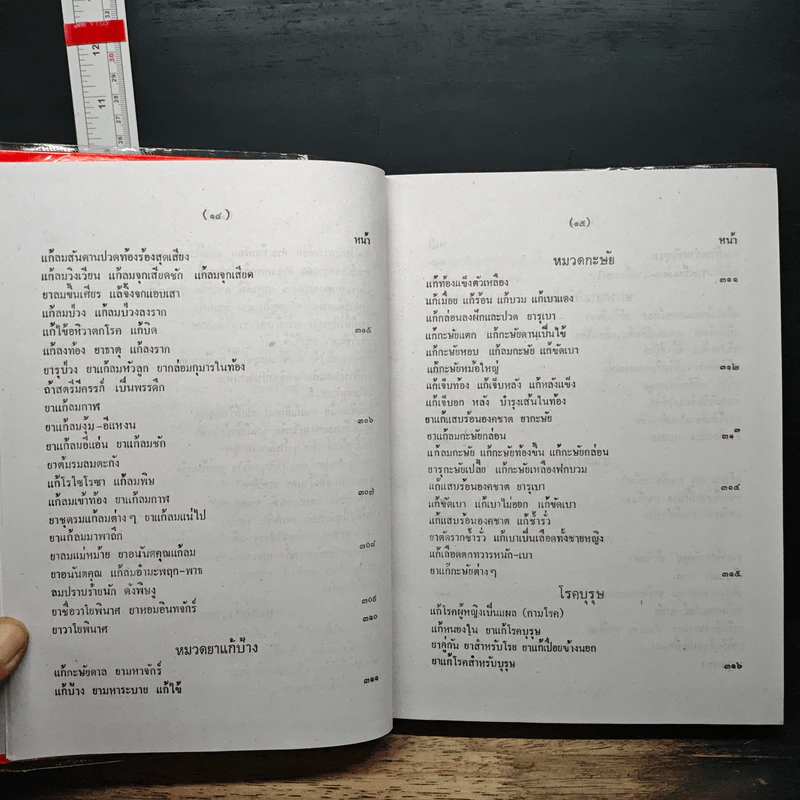 (๑๔)
หน้า
แก้ลมสันดานปวดท้องร้องสุดเสียง
แก้ลมวิงเวียน แก้ลมจุกเสียดชัก แก้ลมจุกเสียด
ยาลมขึ้นศีรษะ
แก้ลมป่วง แก้ลมป่วงลงราก
แก้ไข้อหิวาตกโรค แก้บิด ๓๐๕
แก้ลงท้อง ยาธาตุ แก้ลงราก
ยารุป่วง ยาแก้ลมหัวลูก ยากล่อมกุมารในท้อง
ถ้าสตรีมีครรภ์ เป็นพรรดึก
ยาแก้ลมกาฬ
ยาแก้ลมงุ้ม-อีแหงน ๓๐๖
ยาแก้ลมอี่แอ่น ยาแก้ลมชัก
ยาต้มรมลมตะกัง
แก้โรโซโรซา แก้ลมพิษ
แก้ลมเข้าท้อง ยาแก้ลมกาฬ ๓๐๗
ยาชุดรมแก้ลมต่างๆ ยาแก้ลมแน่ไป
ยาแก้ลมมาพาถึก
ยาลมแม่หม้าย ยาอนันตคุณแก้ลม ๓๐๘
ยาอนันตคุณ แก้ลมอำมะพฤก-พาธ
ลมปราบร้ายนัก ดังพิษงู
ยาชื่อวาโยพินาศ ยาหอมอินทจักร์ ๓๐๙
ยาวาโยพินาศ ๓๑๐
หมวดยาแก้ป้าง
แก้กะษัยดาล ยามหาจักร์
แก้ป้าง ยามหาระบาย แก้ไข้ ๓๑๑
(๑๕)
หน้า
หมวดกะษัย
แก้ท้องแข็งตัวเหลือง ๓๑๑
แก้เมื่อย แก้ร้อน แก้บวม แก้เบาแดง
แก้กล่อนลงฝักและปวด ยารุเบา
แก้กะษัยแตก แก้กะษัยดานเป็นไข้
แก้กะษัยหอบ แก้ลมกะษัย แก้ขัดเบา
แก้กะษัยหม้อใหญ่ ๓๑๒
แก้เจ็บท้อง แก้เจ็บหลัง แก้หลังแข็ง
แก้เจ็บอก หลัง บำรุงเส้นในท้อง
ยาแก้แสบร้อนองคชาต ยากะษัย
ยาแก้ลมกะษัยกล่อน ๓๑๓
แก้ลมกะษัย แก้กะษัยท้องขึ้น แก้กะษัยกล่อน
ยารุกะษัยเปลี่ย แก้กะษัยเหลืองฟกบวม
แก้แสบร้อนองคชาต ยารุเบา ๓๑๔
แก้ขัดเบา แก้เบาไม่ออก แก้ขัดเบา
แก้แสบร้อนองคชาต แก้ช้ำรั่ว
ยาตัดรากช้ำรั่ว แก้เบาเป็นเลือดทั้งชายหญิง
แก้เลือดตกทวารหนัก-เบา
ยาแก้กะษัยต่างๆ ๓๑๕
โรคบุรุษ
แก้โรคผู้หญิงเป็นแผล (กามโรค)
แก้หนองใน ยาแก้โรคบุรุษ
ยาคู่กัน ยาสำหรับโรย ยาแก้เปื่อยข้างนอก
ยาแก้โรคสำหรับบุรุษ ๓๑๖
12
11